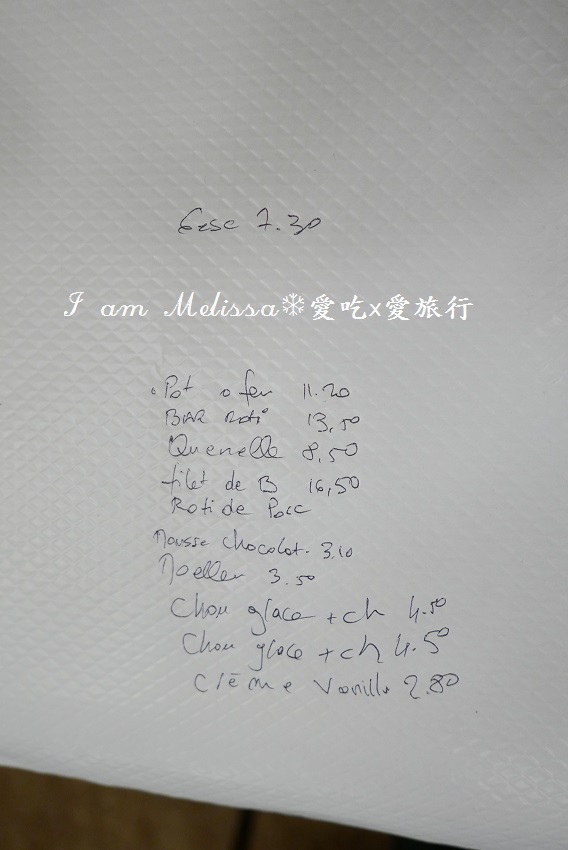 7.30
I am Melissa❄愛吃x愛旅行
Pot o feu 11.20
BAR Roti 13,50
Quenelle 8,50
filet de B 16,50
Roti de Porc
Mousse chocolat. 3.10
Moelleu 3.50
Chou glace + ch 4.50
Chou glace + ch 4.50
Crème Vanille 2.80